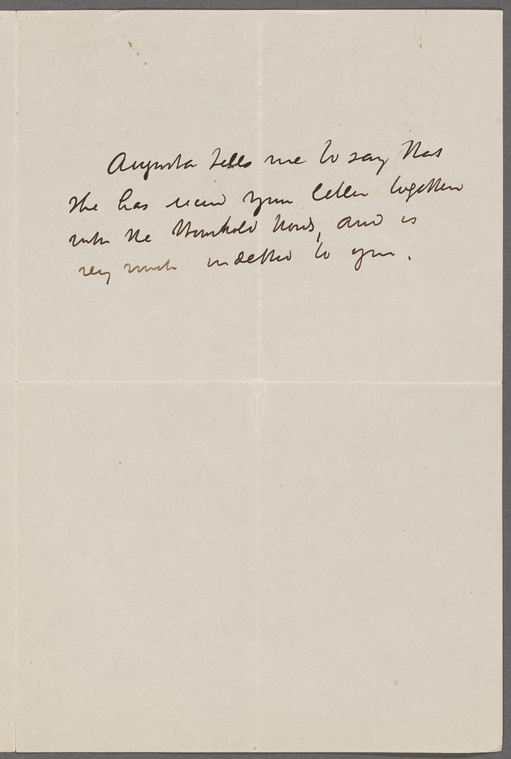 Augusta tells me to say that
she has recd your letter together
with the Household Words, and is
very much indebted to you.